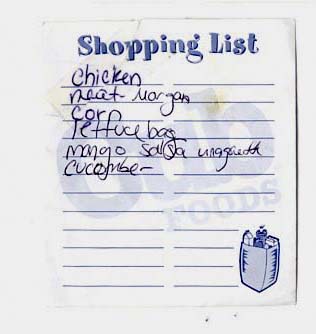 Shopping List
chicken
meat - Morgan
corn
lettuce bag
mango salsa
cucumber
Cub
FOODS